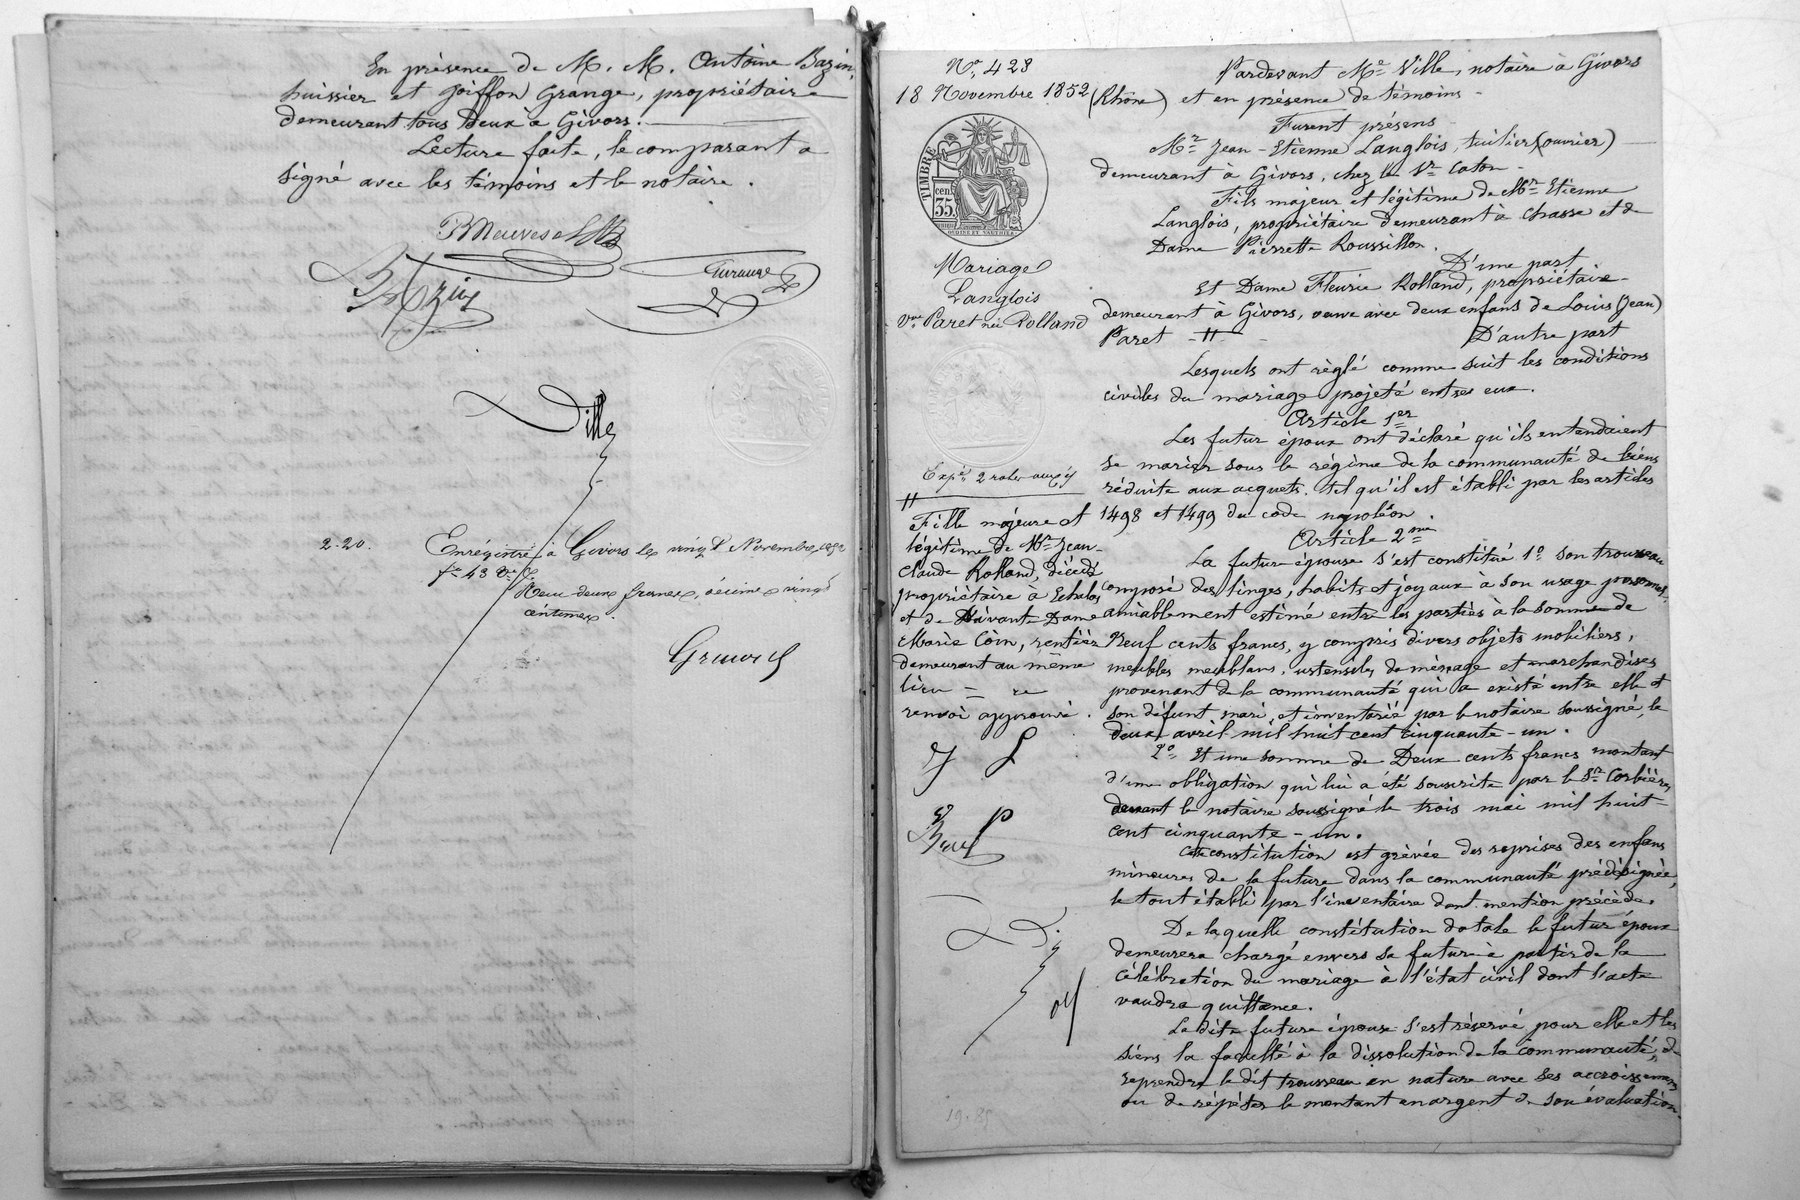 En présence de M. M. Antoine Bazin,
huissier et Joiffon Grange, propriétaire
demeurant tous deux à Givors.
Lecture faite, le comparant a
signé avec les témoins et le notaire.
Bazin
Ville
2.20.
Enrégistré à Givors le vingt Novembre 1852
fo 48
Reçu deux francs, décime vingt
centimes.
No 428
18 Novembre 1852
TIMBRE
35 cent
Mariage
Langlois
Vve Paret née Rolland
Pardevant Me Ville, notaire à Givors
(Rhône) et en présence de témoins -
Furent présens
Mr Jean-Etienne Langlois, tuilier (ouvrier)
demeurant à Givors, chez le Sr Caton
Fils majeur et légitime de Mr Etienne
Langlois, propriétaire demeurant à Chasse et de
Dame Pierrette Roussillon.
D'une part
Et Dame Fleurie Rolland, propriétaire
demeurant à Givors, veuve avec deux enfans de Louis (Jean)
Paret - # -
D'autre part
Lesquels ont règlé comme suit les conditions
civiles du mariage projeté entre eux.
Article 1er
Les futur époux ont déclaré qu'ils entendaient
se marier sous le régime de la communauté de biens
réduite aux acquets. tel qu'il est établi par les articles
1498 et 1499 du code napoléon.
Article 2me
La future épouse s'est constitué 1o son trousseau
composé des linges, habits et joyaux à son usage personnel,
amiablement estimé entre les parties à la somme de
Neuf cents francs, y compris divers objets mobiliers,
meubles meublans, ustensiles de ménage et marchandises
provenant de la communauté qui a existé entre elle et
son défunt mari, et inventorié par le notaire soussigné, le
deux avril mil huit cent cinquante-un.
2o Et une somme de Deux cents francs montant
d'une obligation qui lui a été souscrite par le Sr Corbière,
devant le notaire soussigné le trois mai mil huit
cent cinquante-un.
Cette constitution est grèvée des reprises des enfans
mineures de la future dans la communauté prédésignée,
le tout établi par l'inventaire dont mention précède.
De laquelle constitution dotale le futur époux
demeurera chargé envers sa future à partir de la
célébration du mariage à l'état civil dont l'acte
vaudra quittance.
La dite future épouse s'est réservé pour elle et les
siens la faculté à la dissolution de la communauté, de
reprendre le dit trousseau en nature avec ses accroissemens
ou de répéter le montant en argent de son évaluation.
#
Fille majeure et
légitime de Mr Jean-
Claude Rolland, décédé
propriétaire à Echalas
et de vivante Dame
Marie Coin, rentière
demeurant au même
lieu
renvoi approuvé.
J L
19.85